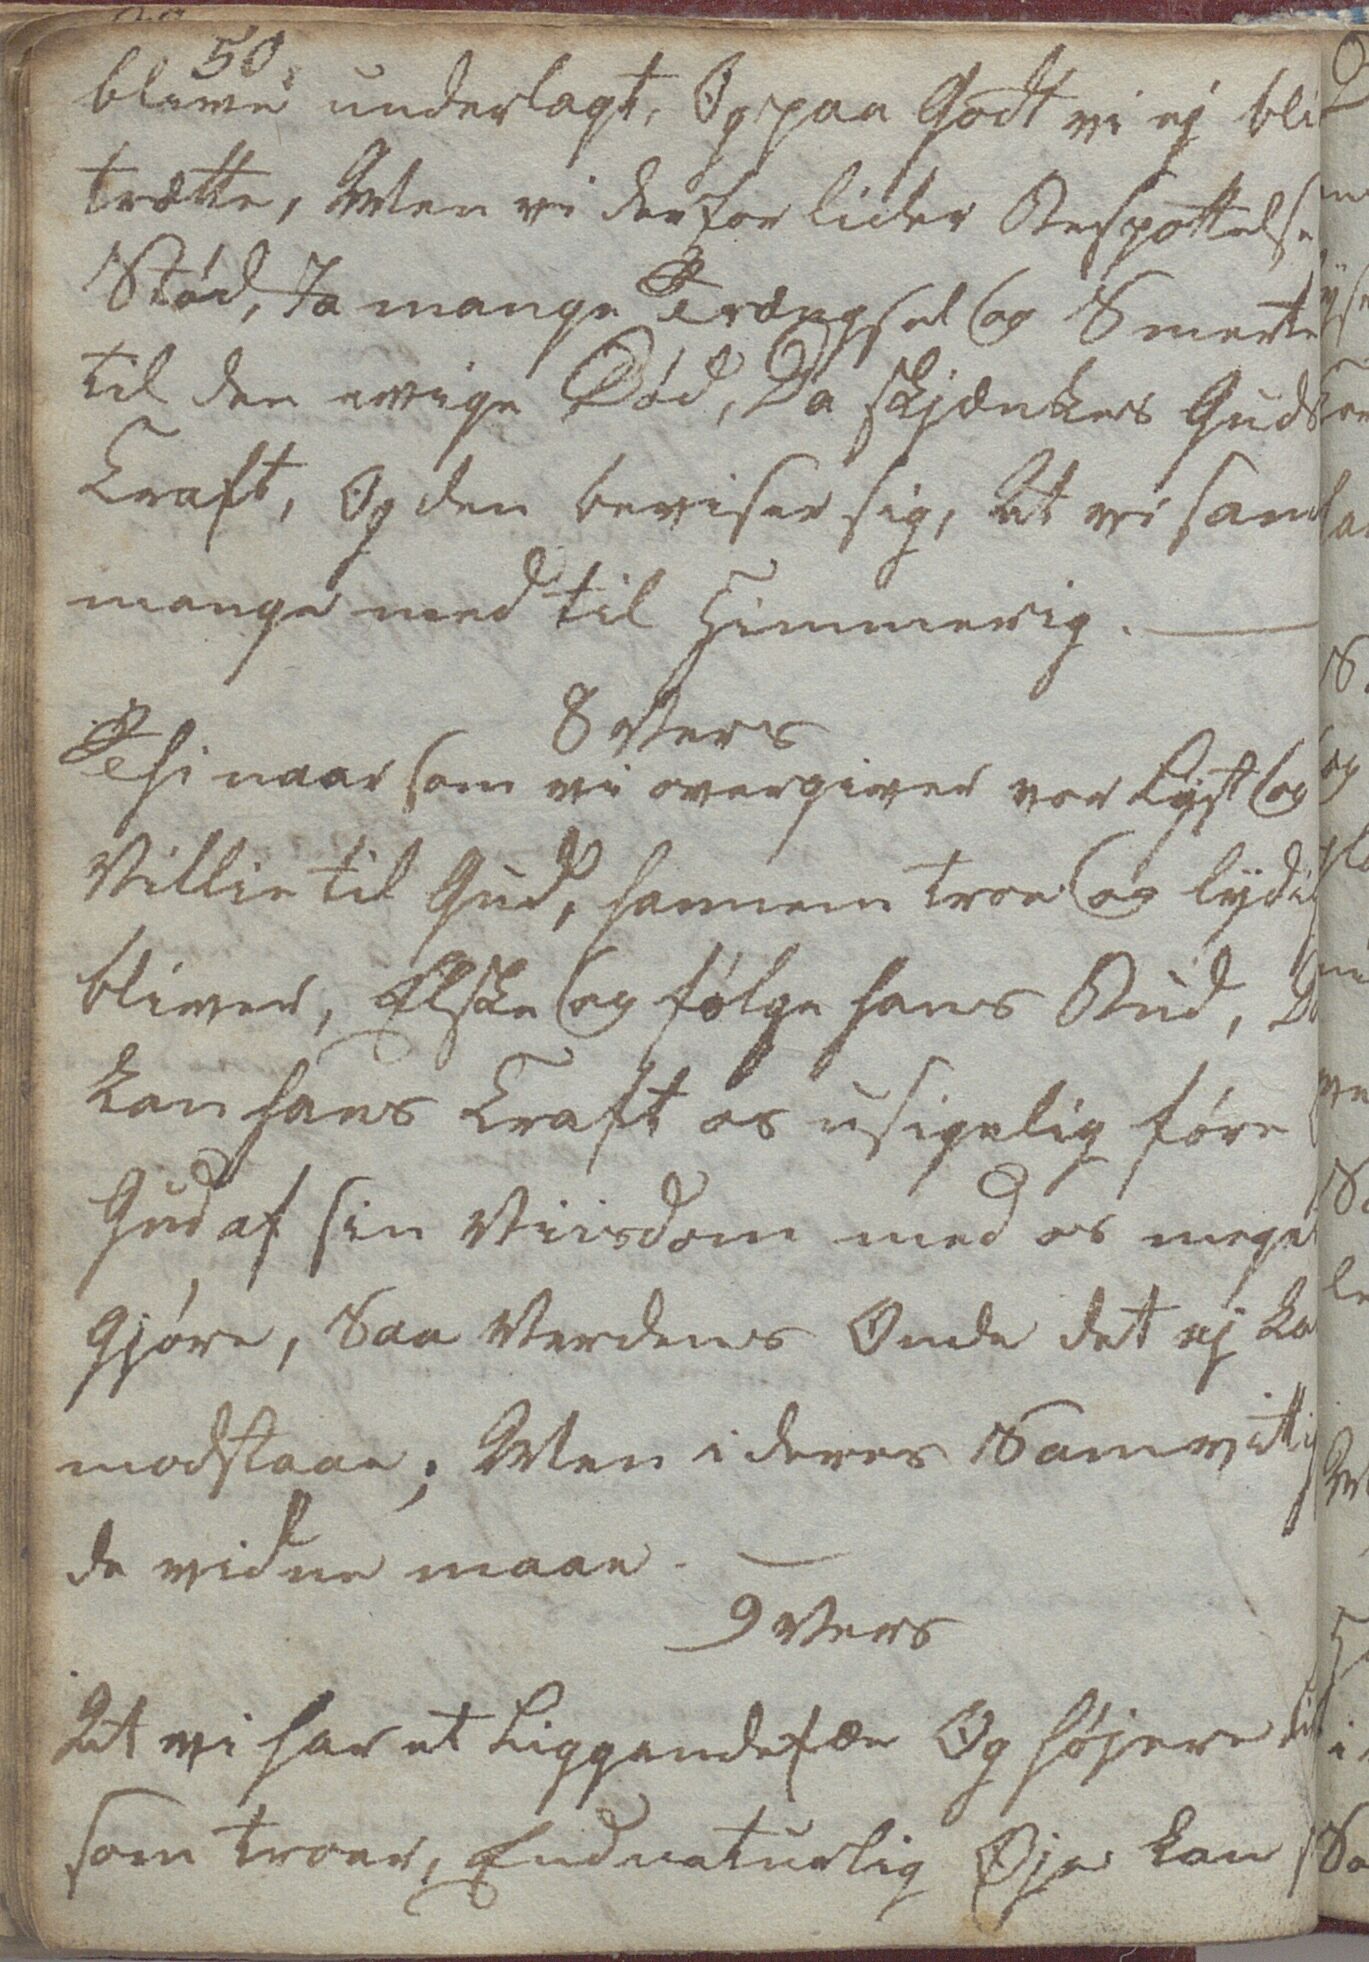 50.
blive underlagt, Og paa Godt vi ej bli
trætte, Men vi derfor lider Bespottelse
Stød, Ja mange Trængsel og Smerte
til den evige Død, Da skjænkes Guds
Kraft, Og den beviser sig, At vi faar
mange med til Himmerig.
8 Vers
Thi naar som vi overgiver vor Lyst og
Villie til Gud, hannem troe og lydig
bliver, Elske og følge hans Bud, Da
kan hans Kraft os usigelig føre
Gud af sin Viisdom med os meget
gjøre, Saa Verdens Onde det ej ka
modstaae; Men i deres Samvittig
de vidne maae.
9 Vers
At vi har et Liggendefæ Og højere
som troer, End naturlig Øje kan